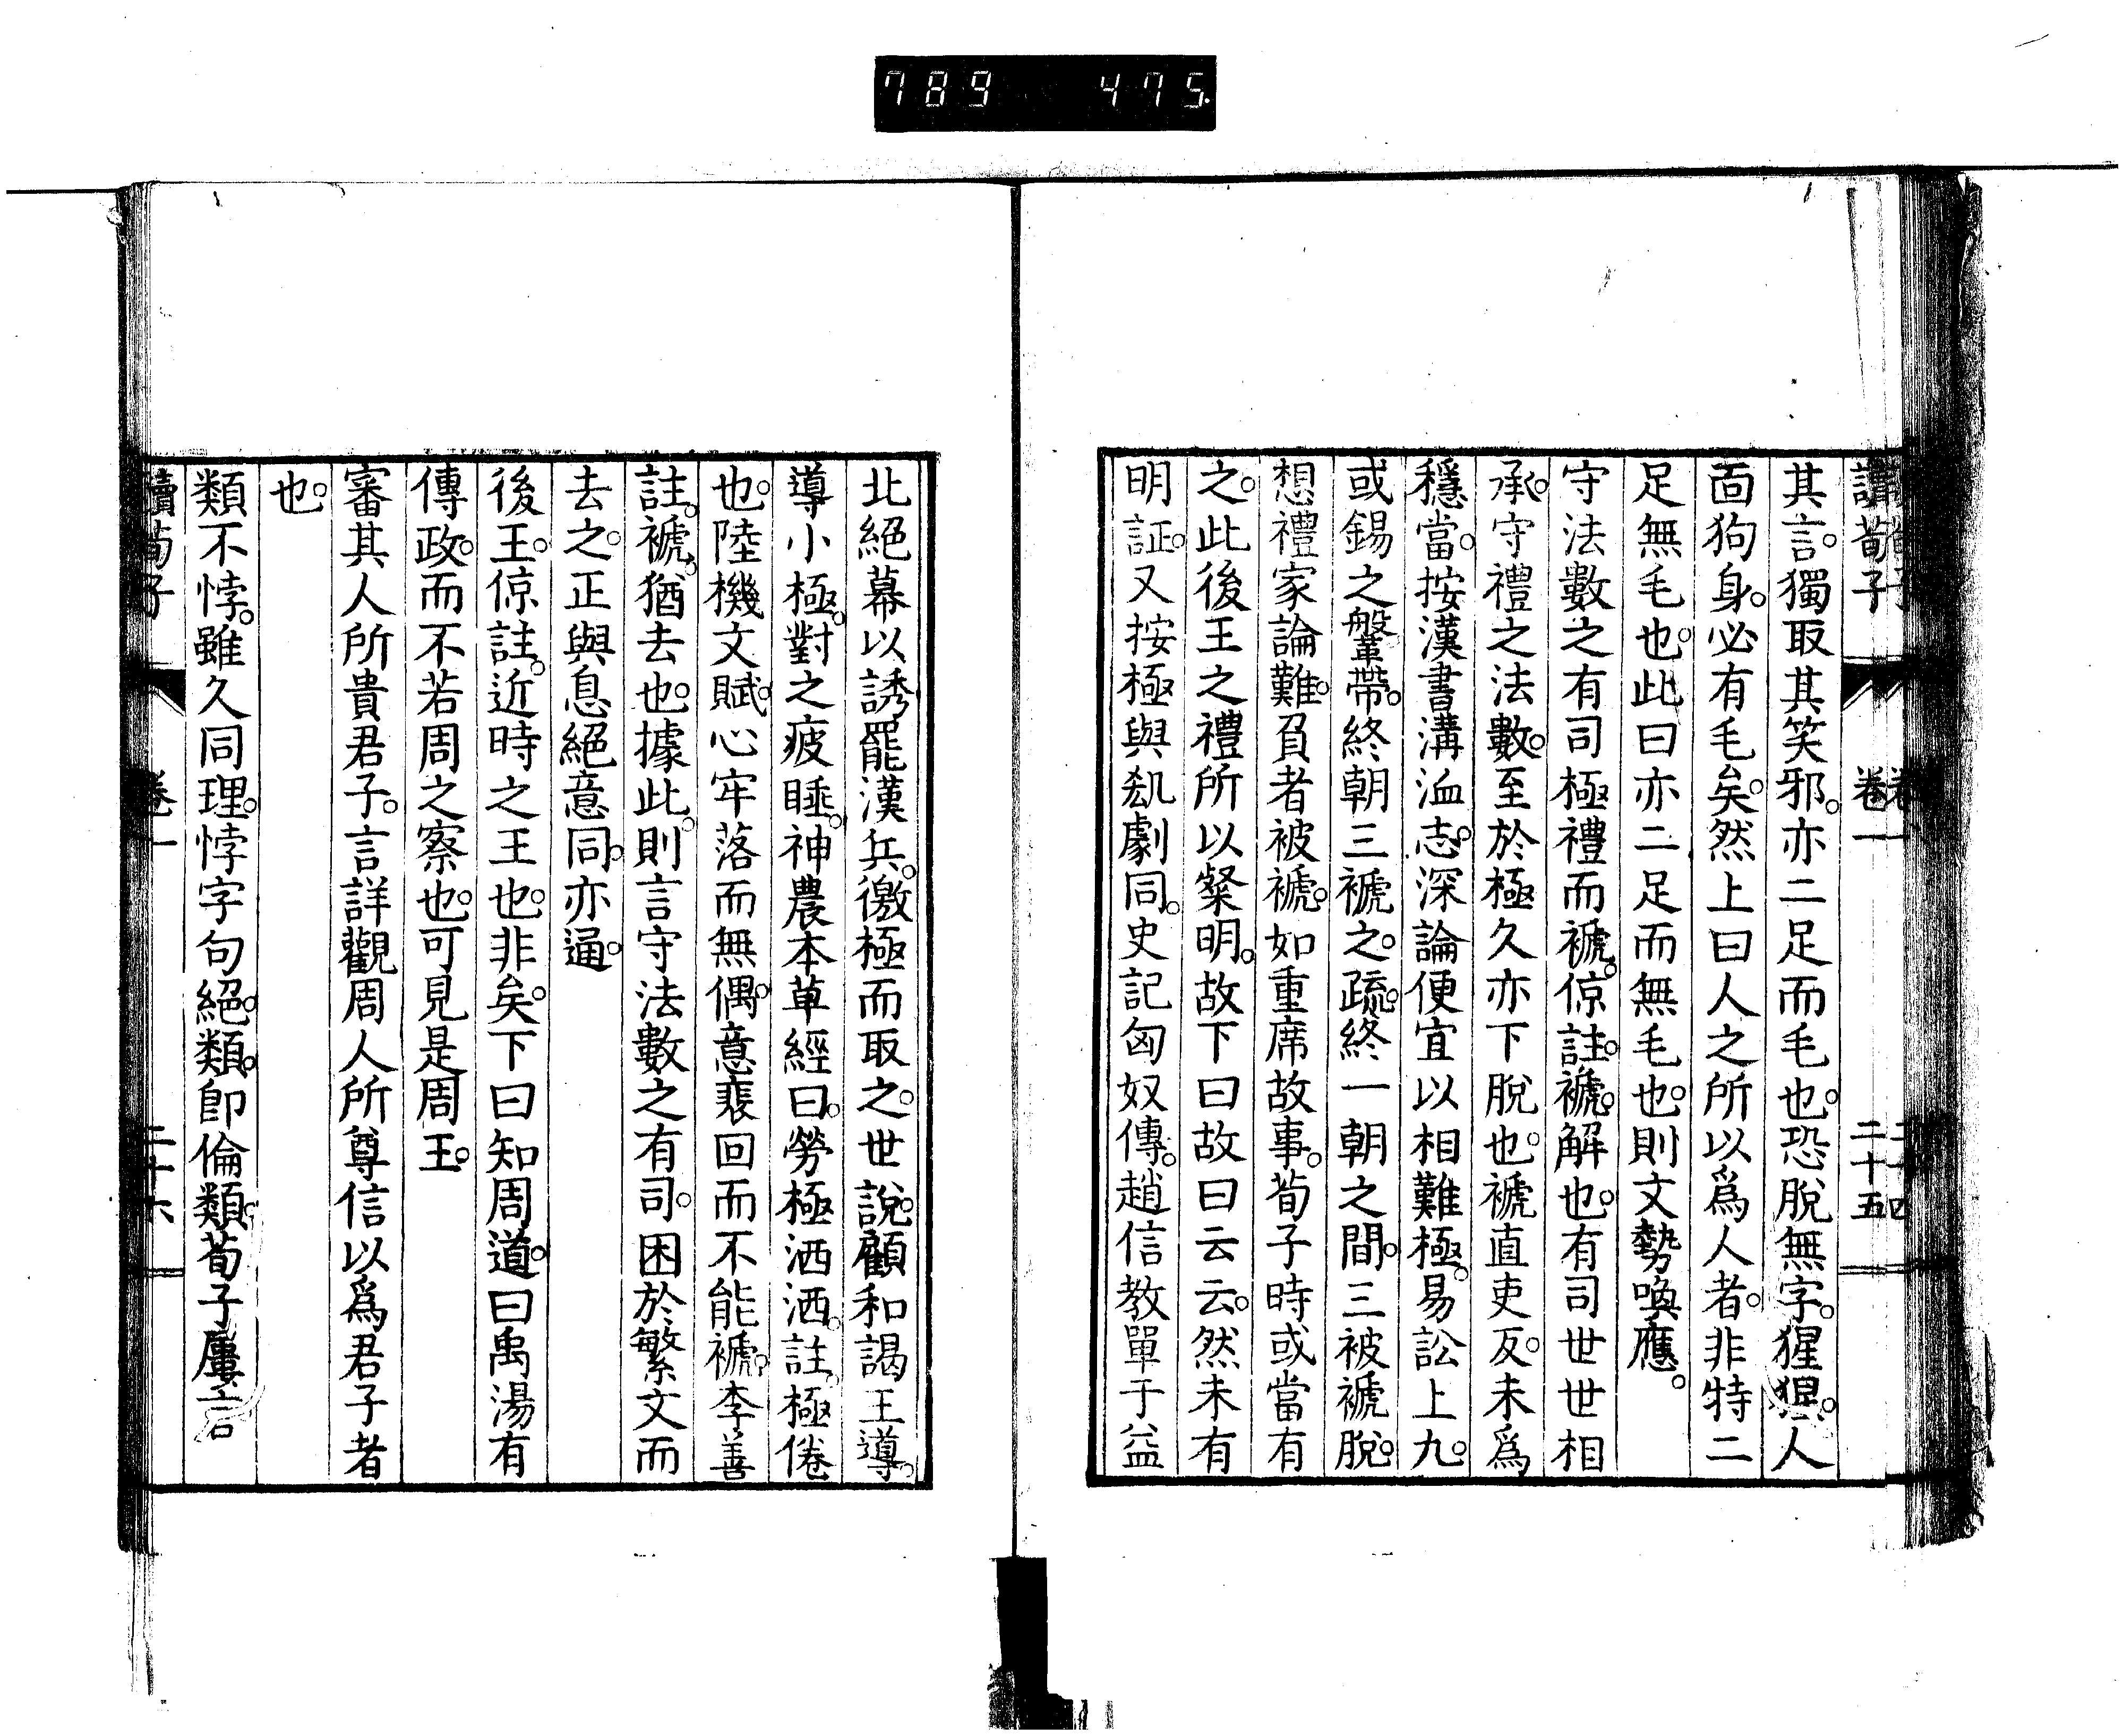 789 475.
讀荀子 卷一 二十五
其言。獨取其笑邪。亦二足而毛也。恐脫無字。猩猩。人
面狗身。必有毛矣。然上曰人之所以爲人者。非特二
足無毛也。此曰亦二足而無毛也。則文勢喚應。
守法數之有司極禮而褫。倞註。褫。解也。有司世世相
承。守禮之法數。至於極久亦下脫也。褫直吏反。未爲
穩當。按漢書溝洫志。深論便宜以相難極。易訟上九。
或錫之鞶帶。終朝三褫之。疏。終一朝之間。三被褫脫。
想禮家論難。負者被褫。如重席故事。荀子時或當有
之。此後王之禮所以粲明。故下曰故曰云云。然未有
明証。又按極與㔸劇同。史記匈奴傳。趙信教單于益
北絕幕以誘罷漢兵。徼極而取之。世說。顧和謁王導。
導小極。對之疲睡。神農本草經曰。勞極洒洒。註。極倦
也。陸機文賦。心牢落而無偶。意裵回而不能褫。李善
註。褫。猶去也。據此。則言守法數之有司。困於繁文而
去之。正與息絕意同。亦通。
後王。倞註。近時之王也。非矣。下曰知周道。曰禹湯有
傳政。而不若周之察也。可見是周王。
審其人所貴君子。言詳觀周人所尊信以爲君子者
也。
類不悖。雖久同理。悖字句絕。類。卽倫類。荀子屢言
讀荀子 卷一 二十六